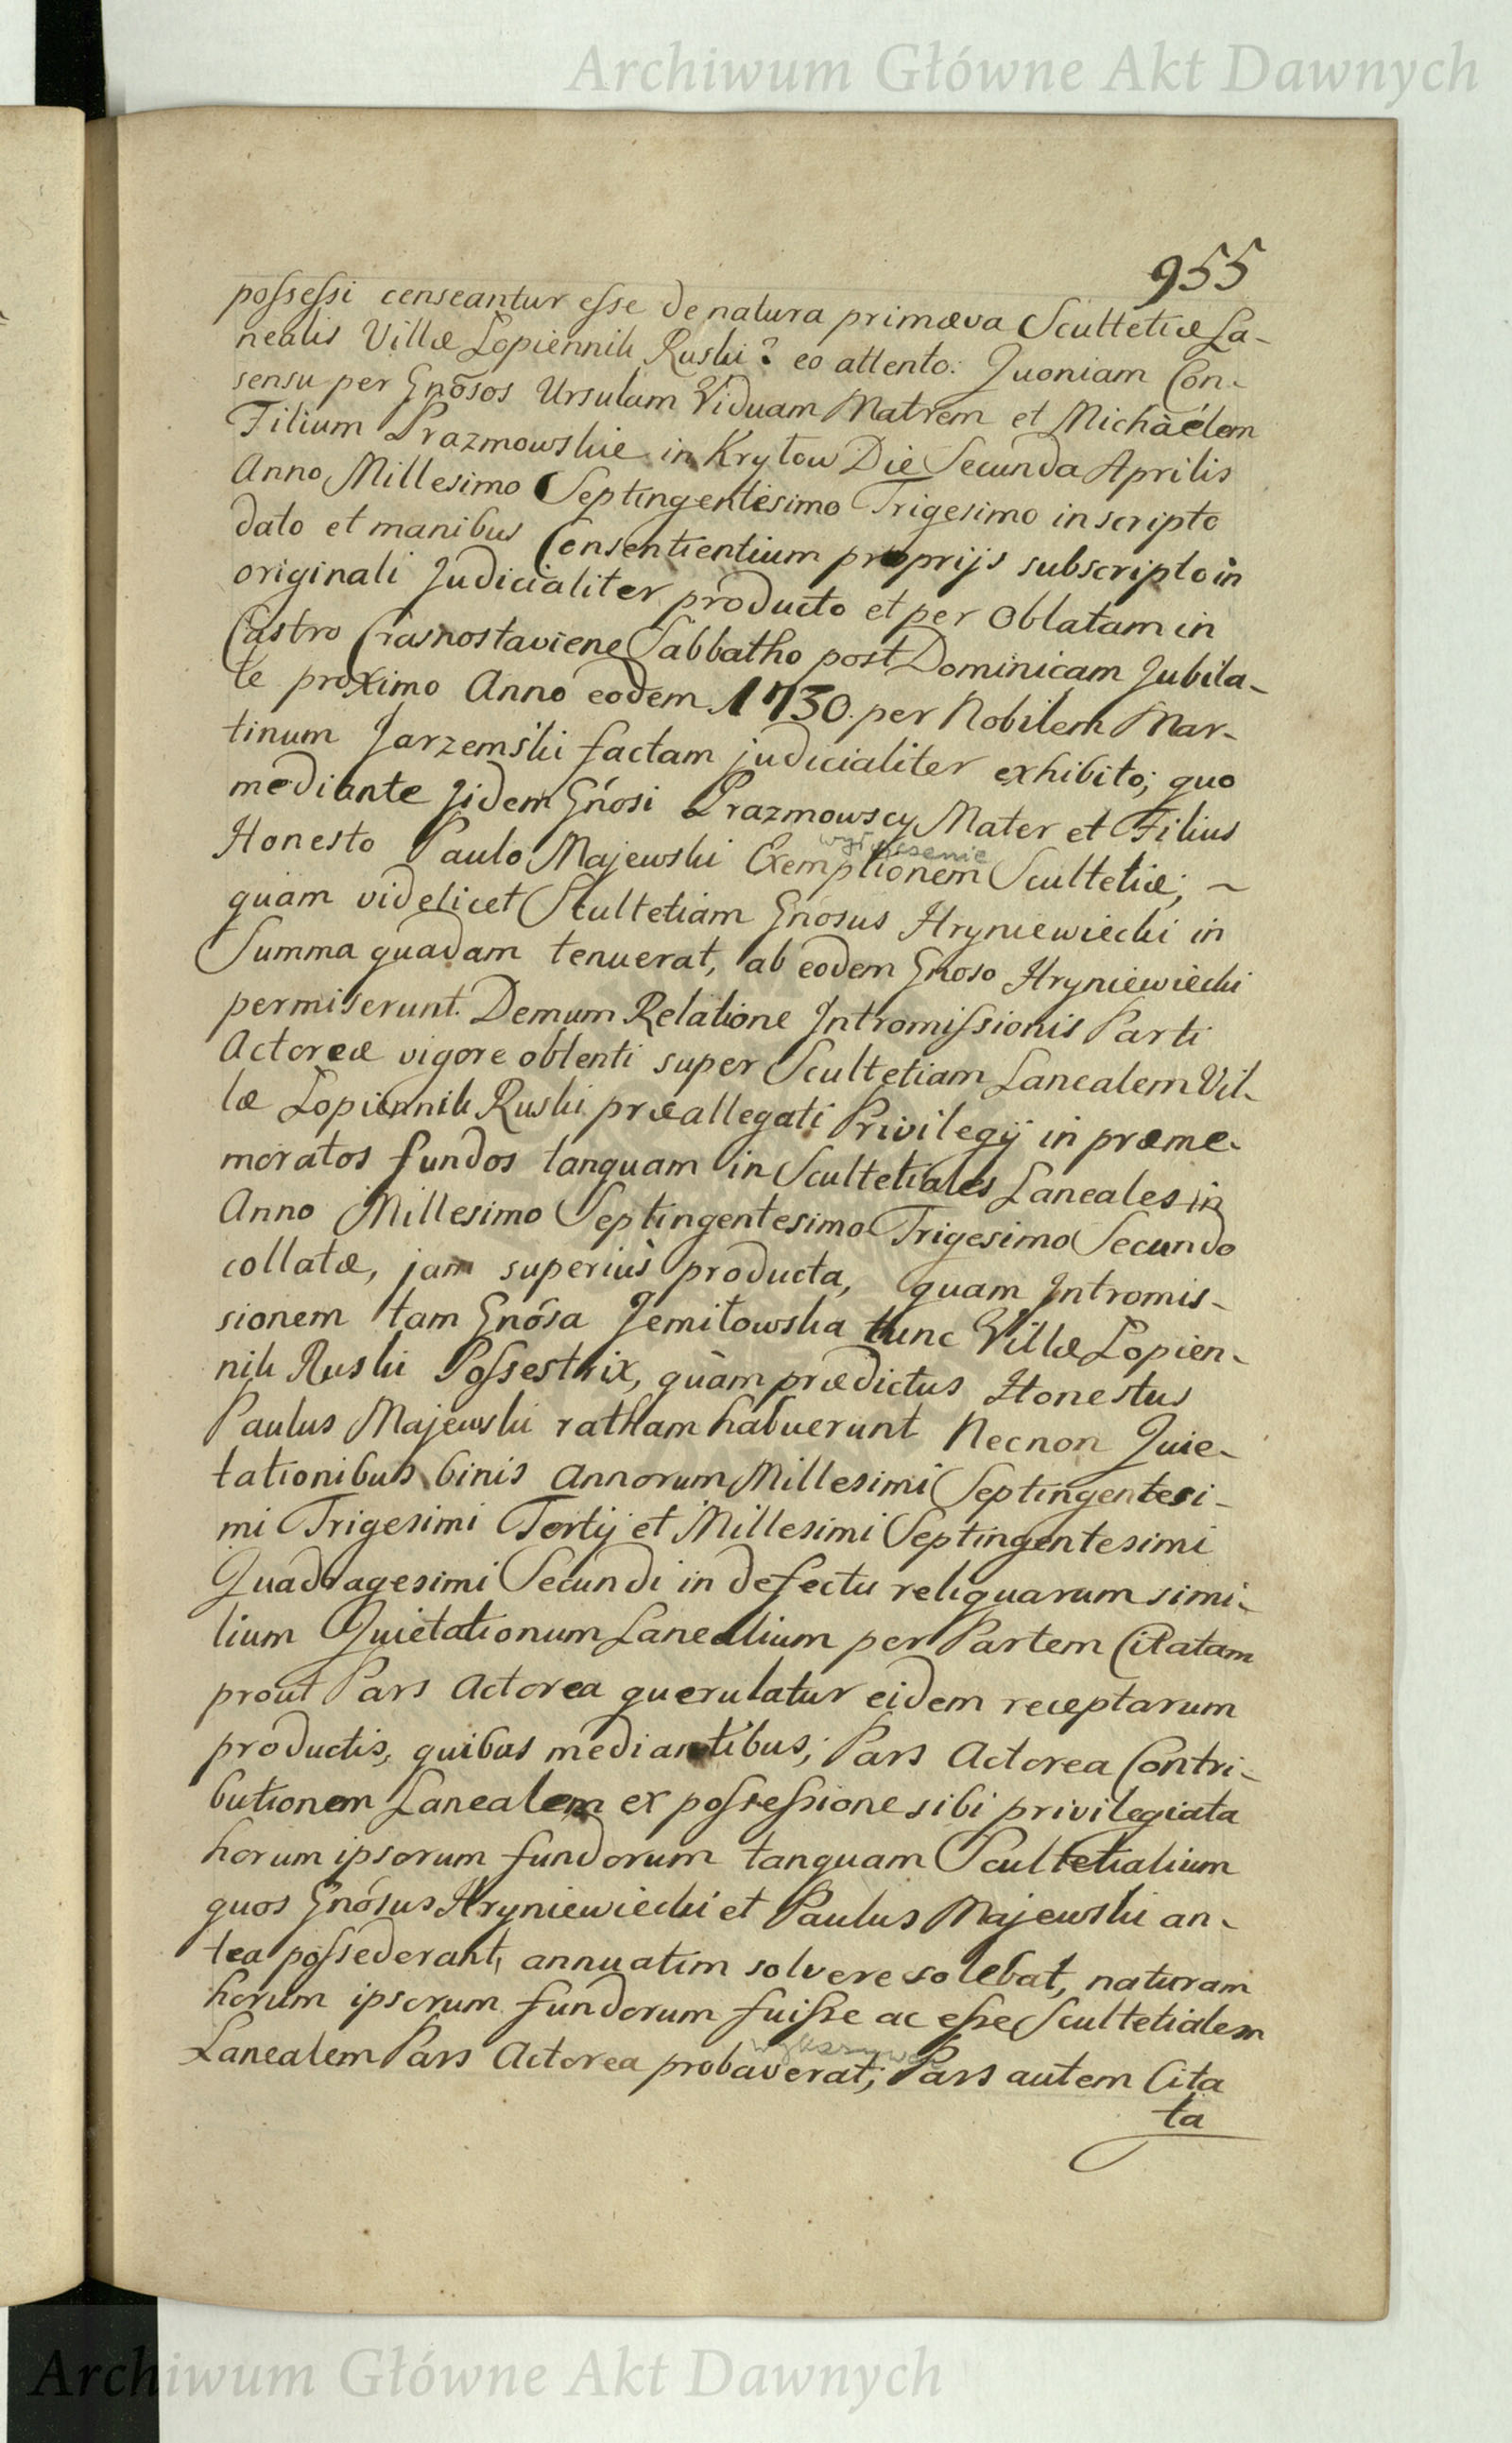 Archiwum Główne Akt Dawnych
955
possessi censeantur esse de natura primæva Scultetiæ La-
nealis Villæ Łopiennik Ruski? eo attento: Quoniam Con-
sensu per Gnõsos Ursulam Viduam Matrem et Michàélem
Filium Prazmowskie in Kryłow Die Secunda Aprilis
Anno Millesimo Septingentesimo Trigesimo in scripto
dato et manibus Consentientium proprijs subscripto in
originali Judicialiter producto et per Oblatam in
Castro Crasnostaviens Sabbatho post Dominicam Jubila-
te proximo Anno eodem 1730. per Nobilem Mar-
tinum Jarzemski factam judicialiter exhibito; quo
mediante Jidem Gnõsi Prazmowscy Mater et Filius
wyięssenie
Honesto Paulo Majewski Exemptionem Scultetiæ; ~
quam videlicet Scultetiam Gnosus Hryniewiecki in
Summa quadam tenuerat, ab eodem Gnoso Hryniewiecki
permiserunt. Demum Relatione Intromissionis Parti
Actoreæ vigore obtenti super Scultetiam Lanealem Vil-
læ Łopiennik Ruski præallegati Privilegij in præme-
moratos fundos tanquam in Scultetiales Laneales in
Anno Millesimo Septingentesimo Trigesimo Secundo
collatæ, jam superiùs producta, quam Intromis-
sionem tam Gnõsa Jemiłowska tunc Villæ Łopien-
nik Ruski Possestrix, quàm prædictus Honestus
Paulus Majewski ratham habuerunt Necnon Quie-
tationibus binis Annorum Millesimi Septingentesi-
mi Trigesimi Tertij et Millesimi Septingentesimi
Quadragesimi Secundi in defectu reliquarum simi-
lium Quietationum Lanealium per Partem Citatam
prout Pars Actorea querulatur eidem receptarum
productis, quibus mediantibus; Pars Actorea Contri-
butionem Lanealem ex possessione sibi privilegiata
horum ipsorum fundorum tanquam Scultetialium
quos Gnõsus Hryniewiecki et Paulus Majewski an-
tea possederant, annuatim solvere solebat, naturam
horum ipsorum fundorum fuisse ac esse Scultetialem
Lanealem Pars Actorea probaverat; Pars autem Cita
ta
Archiwum Główne Akt Dawnych